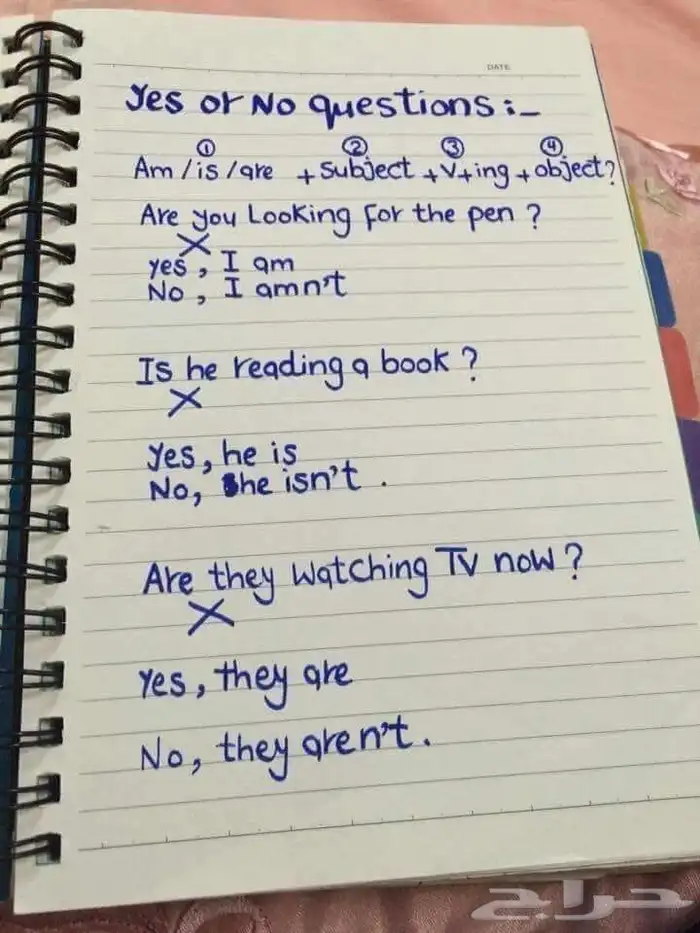 DATE
Yes or No questions :-
① ② ③ ④
Am / is / are + subject + V + ing + object?
Are you Looking for the pen ?
X
yes , I am
No , I amn't
Is he reading a book ?
X
Yes, he is
No, he isn't .
Are they watching TV now ?
X
Yes, they are
No, they aren't.
حراج